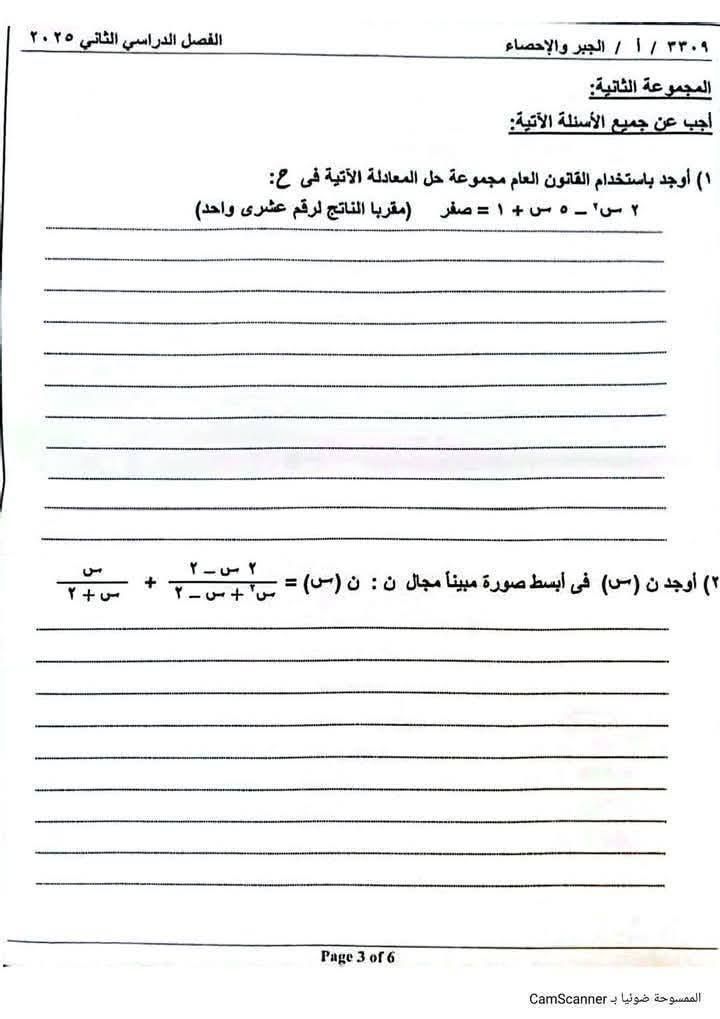 ٣٣٠٩ / أ / الجبر والإحصاء الفصل الدراسي الثاني ٢٠٢٥
المجموعة الثانية:
أجب عن جميع الأسئلة الآتية:
١) أوجد باستخدام القانون العام مجموعة حل المعادلة الآتية فى ح:
٢ س٢ – ٥ س + ١ = صفر (مقربا الناتج لرقم عشرى واحد)
٢) أوجد ن (س) فى أبسط صورة مبيناً مجال ن : ن (س) = (٢ س – ٢)/(س٢ + س – ٢) + س/(س + ٢)
Page 3 of 6
الممسوحة ضوئيا بـ CamScanner